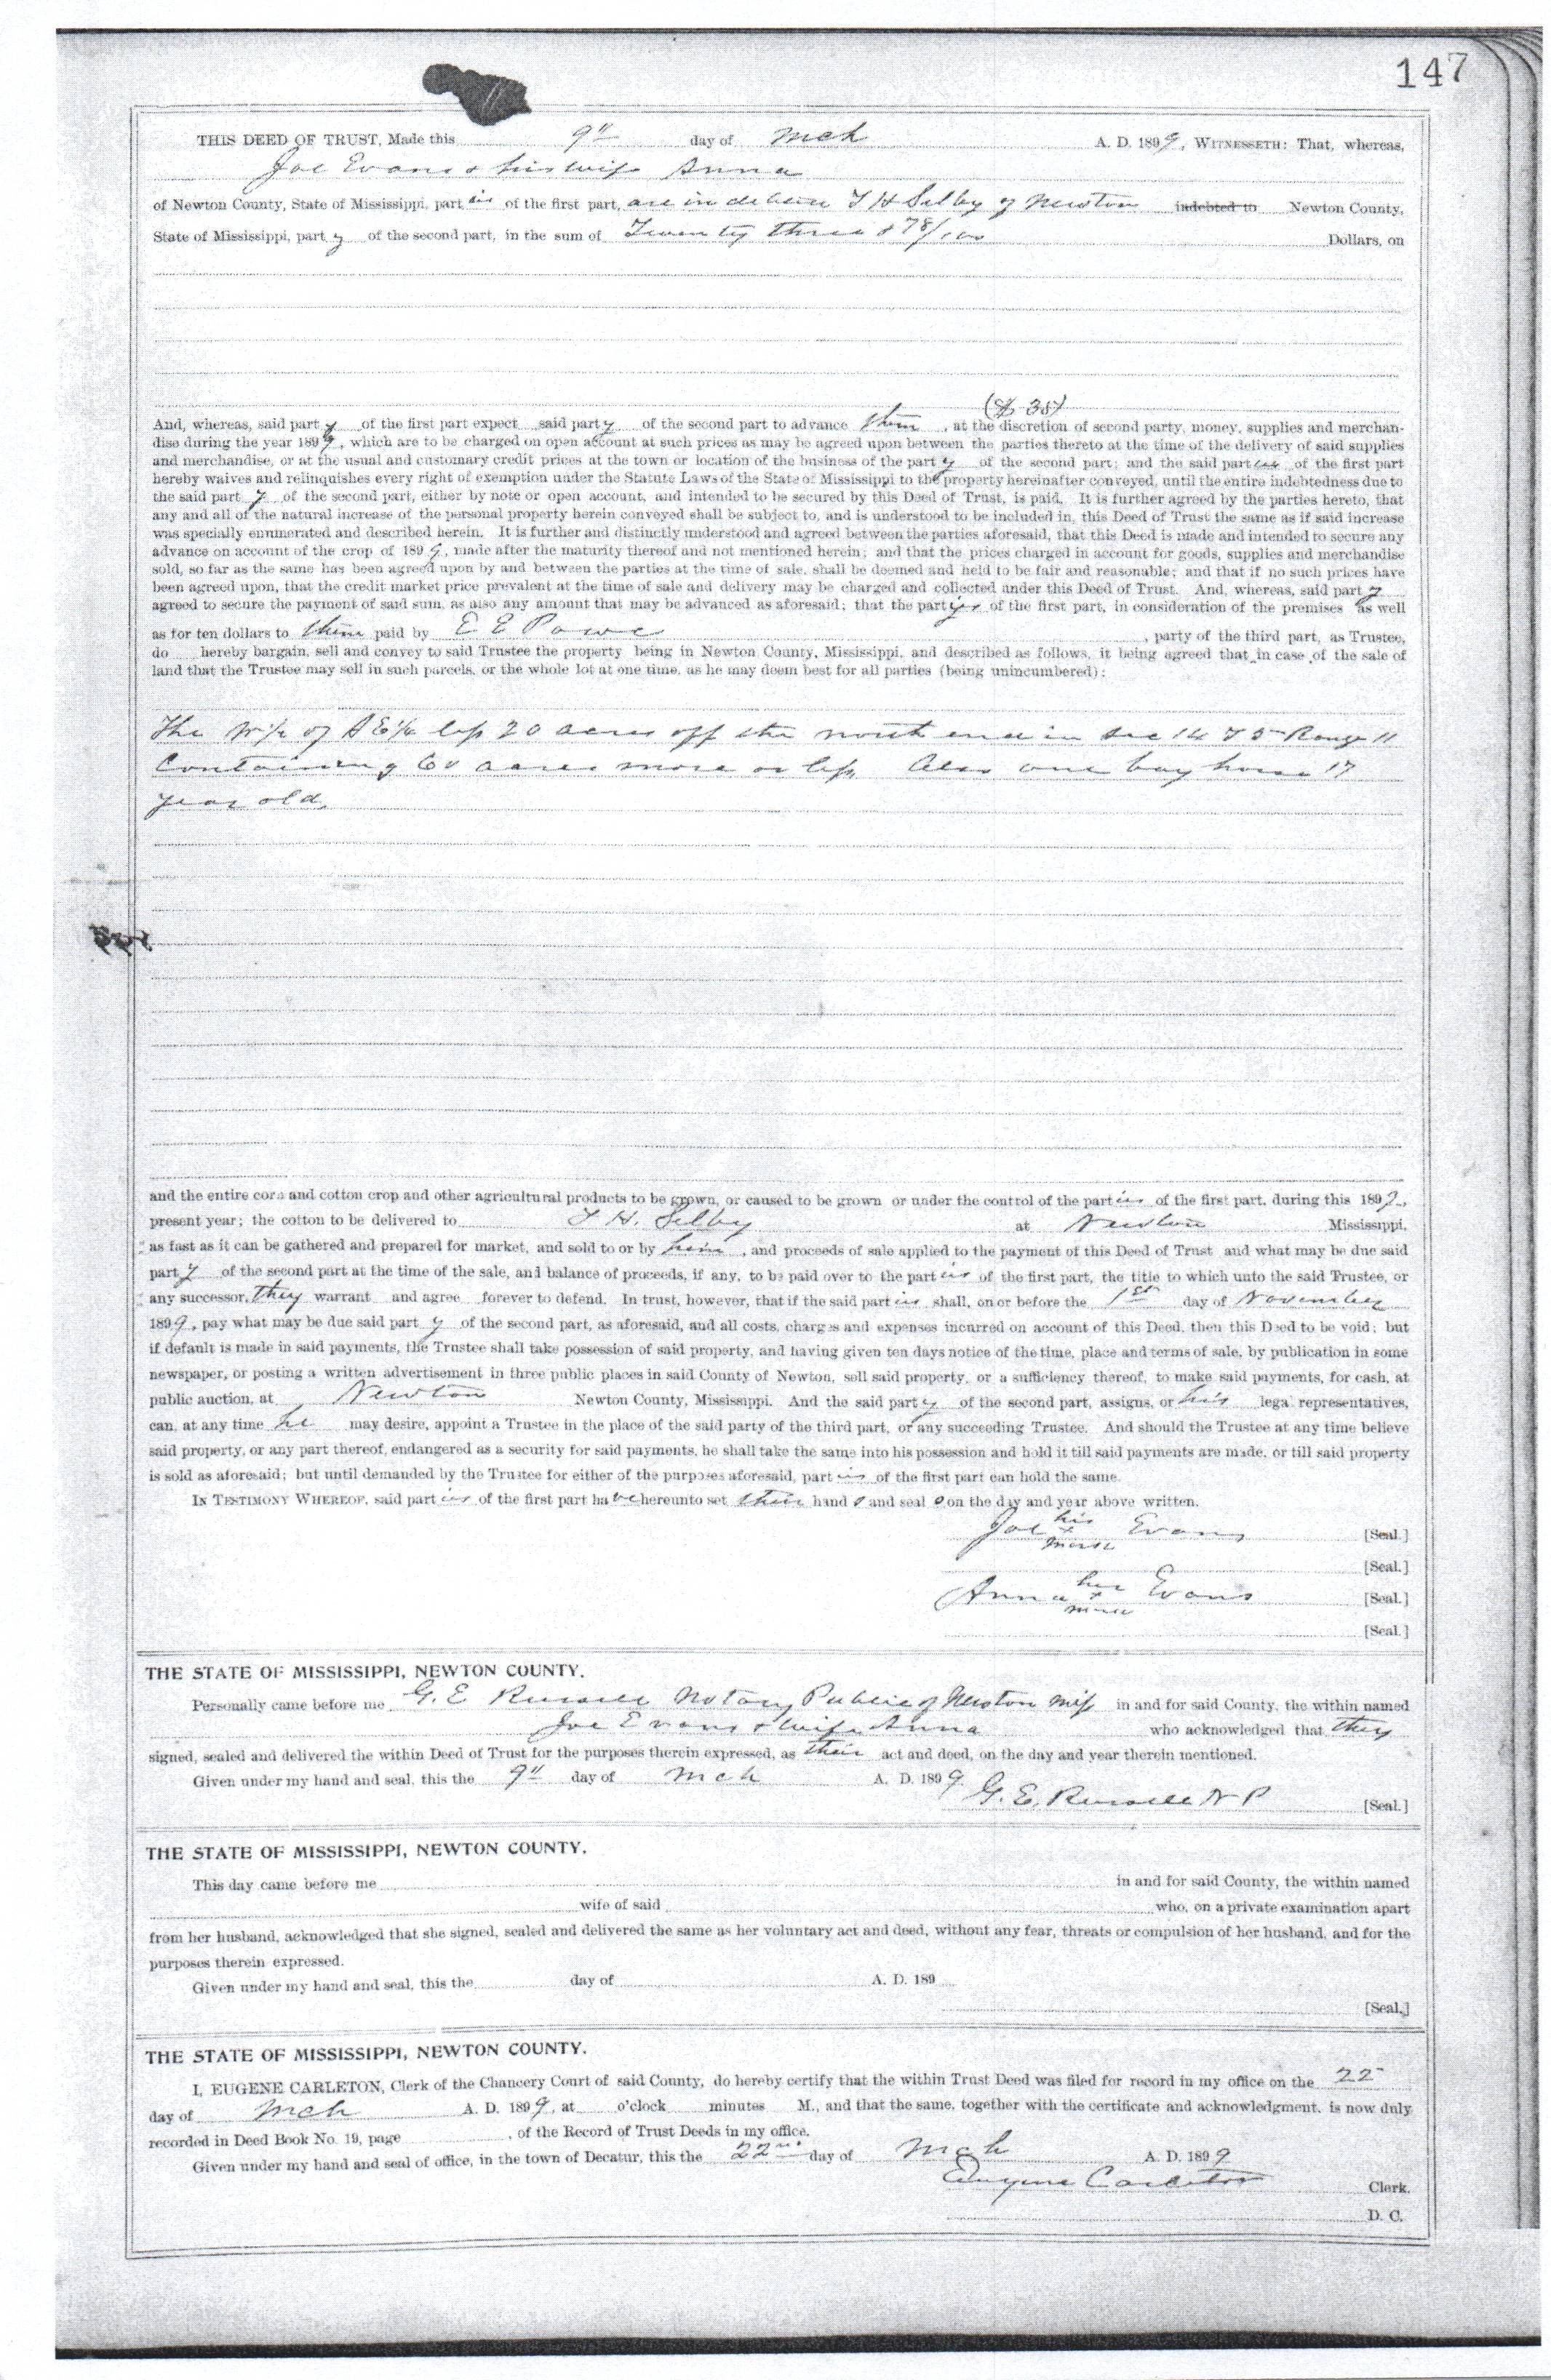 147
THIS DEED OF TRUST, Made this 9" day of Mch A. D. 1899, WITNESSETH: That, whereas,
Joe Evans & his wife Anna
of Newton County, State of Mississippi, part ies of the first part, are in debted T H Selby of Newton indebted to Newton County,
State of Mississippi, part y of the second part, in the sum of Twenty three & 78/100 Dollars, on
($ 35)
And, whereas, said part y of the first part expect said party of the second part to advance them, at the discretion of second party, money, supplies and merchan-
dise during the year 1899, which are to be charged on open account at such prices as may be agreed upon between the parties thereto at the time of the delivery of said supplies
and merchandise, or at the usual and customary credit prices at the town or location of the business of the part y of the second part; and the said part ies of the first part
hereby waives and relinquishes every right of exemption under the Statute Laws of the State of Mississippi to the property hereinafter conveyed, until the entire indebtedness due to
the said part y of the second part, either by note or open account, and intended to be secured by this Deed of Trust, is paid. It is further agreed by the parties hereto, that
any and all of the natural increase of the personal property herein conveyed shall be subject to, and is understood to be included in, this Deed of Trust the same as if said increase
was specially enumerated and described herein. It is further and distinctly understood and agreed between the parties aforesaid, that this Deed is made and intended to secure any
advance on account of the crop of 1899, made after the maturity thereof and not mentioned herein; and that the prices charged in account for goods, supplies and merchandise
sold, so far as the same has been agreed upon by and between the parties at the time of sale, shall be deemed and held to be fair and reasonable; and that if no such prices have
been agreed upon, that the credit market price prevalent at the time of sale and delivery may be charged and collected under this Deed of Trust. And, whereas, said part y
agreed to secure the payment of said sum, as also any amount that may be advanced as aforesaid; that the part yes of the first part, in consideration of the premises as well
as for ten dollars to them paid by E E Powe, party of the third part, as Trustee,
do hereby bargain, sell and convey to said Trustee the property being in Newton County, Mississippi, and described as follows, it being agreed that in case of the sale of
land that the Trustee may sell in such parcels, or the whole lot at one time, as he may deem best for all parties (being unincumbered):
The W½ of S E¼ less 20 acres off the north end in Sec 14 T 5 Range 11
Containing 60 acres more or less Also one bay horse 17
year old.
and the entire corn and cotton crop and other agricultural products to be grown, or caused to be grown or under the control of the part ies of the first part, during this 1899,
present year; the cotton to be delivered to T H. Selby at Newton Mississippi,
as fast as it can be gathered and prepared for market, and sold to or by him, and proceeds of sale applied to the payment of this Deed of Trust and what may be due said
part y of the second part at the time of the sale, and balance of proceeds, if any, to be paid over to the part ies of the first part, the title to which unto the said Trustee, or
any successor, they warrant and agree forever to defend. In trust, however, that if the said part ies shall, on or before the 1st day of November
1899, pay what may be due said part y of the second part, as aforesaid, and all costs, charges and expenses incurred on account of this Deed, then this Deed to be void; but
if default is made in said payments, the Trustee shall take possession of said property, and having given ten days notice of the time, place and terms of sale, by publication in some
newspaper, or posting a written advertisement in three public places in said County of Newton, sell said property, or a sufficiency thereof, to make said payments, for cash, at
public auction, at Newton Newton County, Mississippi. And the said party of the second part, assigns, or his legal representatives,
can, at any time he may desire, appoint a Trustee in the place of the said party of the third part, or any succeeding Trustee. And should the Trustee at any time believe
said property, or any part thereof, endangered as a security for said payments, he shall take the same into his possession and hold it till said payments are made, or till said property
is sold as aforesaid; but until demanded by the Trustee for either of the purposes aforesaid, part ies of the first part can hold the same.
IN TESTIMONY WHEREOF, said part ies of the first part have hereunto set their hand s and seal s on the day and year above written.
his
Joe x Evans [Seal.]
mark
[Seal.]
her
Anna x Evans [Seal.]
mark
[Seal.]
THE STATE OF MISSISSIPPI, NEWTON COUNTY.
Personally came before me G. E Russell Notary Public of Newton Miss in and for said County, the within named
Joe Evans & wife Anna who acknowledged that they
signed, sealed and delivered the within Deed of Trust for the purposes therein expressed, as their act and deed, on the day and year therein mentioned.
Given under my hand and seal, this the 9" day of Mch A. D. 1899
G. E. Russell N P [Seal.]
THE STATE OF MISSISSIPPI, NEWTON COUNTY.
This day came before me in and for said County, the within named
wife of said who, on a private examination apart
from her husband, acknowledged that she signed, sealed and delivered the same as her voluntary act and deed, without any fear, threats or compulsion of her husband, and for the
purposes therein expressed.
Given under my hand and seal, this the day of A. D. 189
[Seal.]
THE STATE OF MISSISSIPPI, NEWTON COUNTY.
I, EUGENE CARLETON, Clerk of the Chancery Court of said County, do hereby certify that the within Trust Deed was filed for record in my office on the 22
day of Mch A. D. 1899, at o'clock minutes M., and that the same, together with the certificate and acknowledgment, is now duly
recorded in Deed Book No. 19, page , of the Record of Trust Deeds in my office.
Given under my hand and seal of office, in the town of Decatur, this the 22nd day of Mch A. D. 1899
Eugene Carleton Clerk.
D. C.